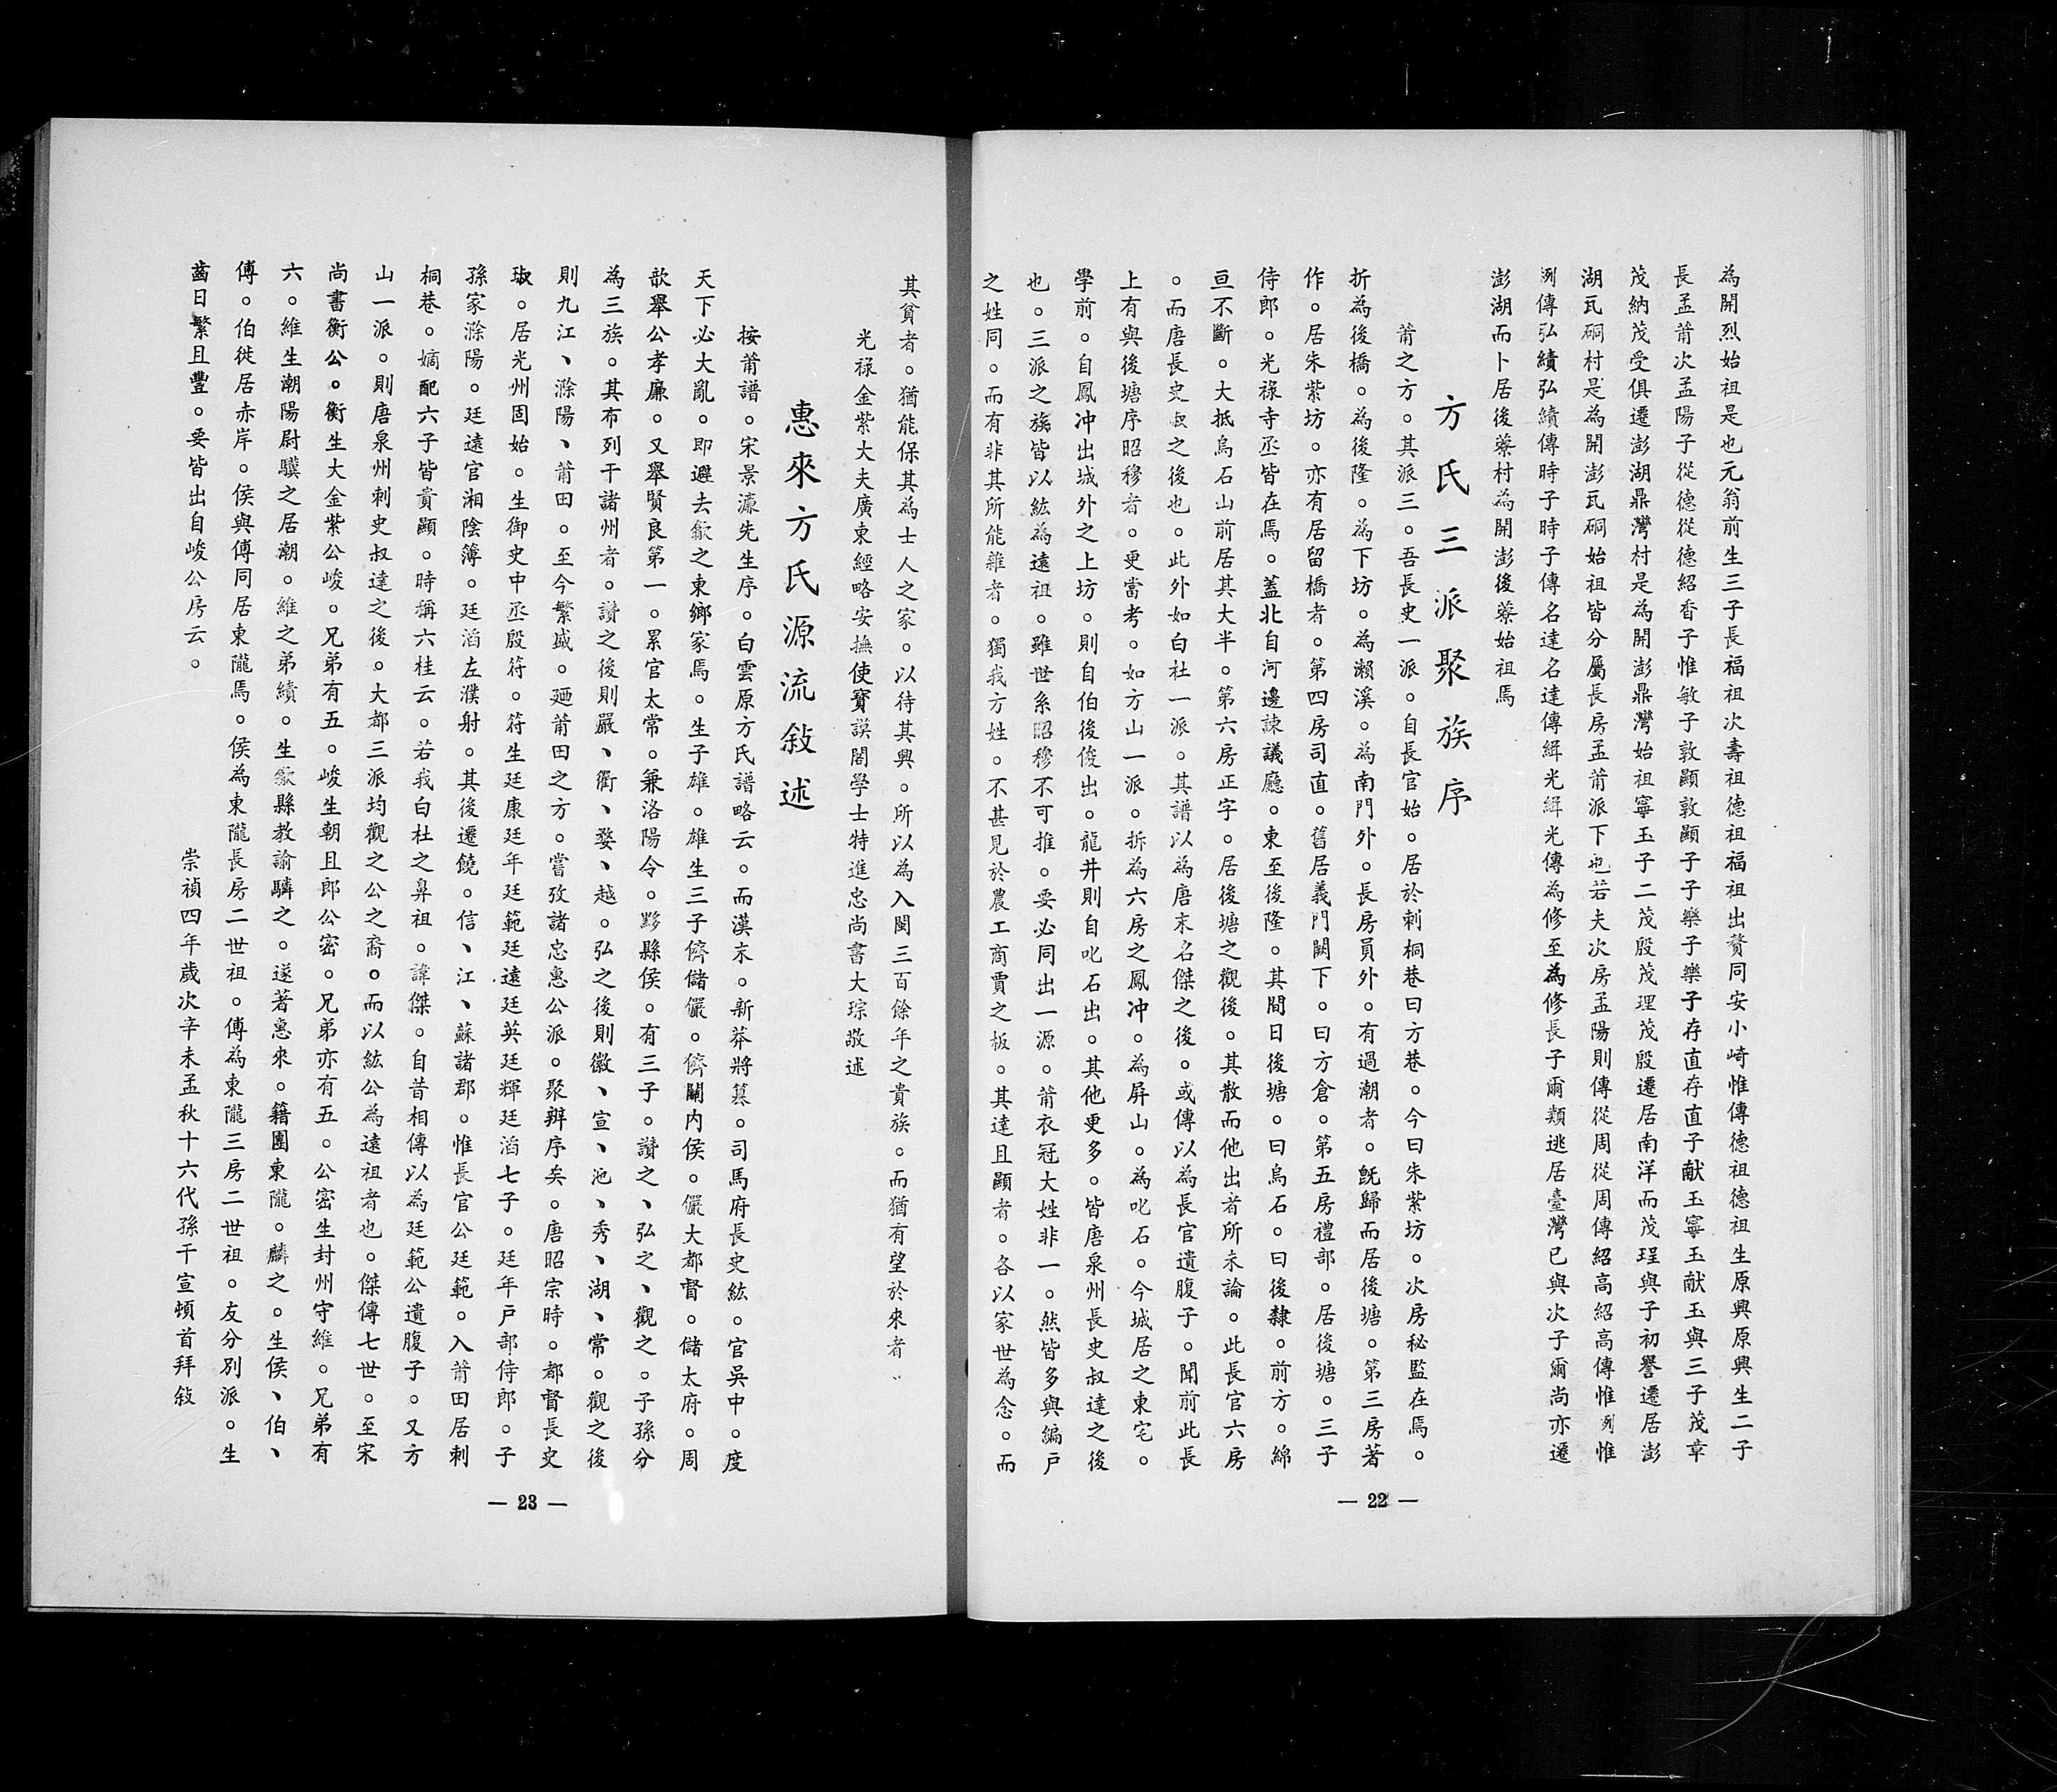 為開烈始祖是也元翁前生三子長福祖次壽祖德祖福祖出贅同安小崎惟傳德祖德祖生原興原興生二子
長孟莆次孟陽子從德從德紹香子惟敏子敦顯敦顯子子樂子樂子存直存直子献玉寧玉献玉與三子茂章
茂納茂受俱遷澎湖鼎灣村是為開澎鼎灣始祖寧玉子二茂殷茂理茂殷遷居南洋而茂珵與子初譽遷居澎
湖瓦硐村是為開澎瓦硐始祖皆分屬長房孟莆派下也若夫次房孟陽則傳從周從周傳紹高紹高傳惟冽惟
冽傳弘績弘績傳時子時子傳名達名達傳緝光緝光傳為修至為修長子爾類逃居臺灣已與次子爾尚亦遷
澎湖而卜居後藔村為開澎後藔始祖焉
方氏三派聚族序
莆之方。其派三。吾長史一派。自長官始。居於刺桐巷曰方巷。今曰朱紫坊。次房秘監在焉。
折為後橋。為後隆。為下坊。為瀨溪。為南門外。長房員外。有過潮者。既歸而居後塘。第三房著
作。居朱紫坊。亦有居留橋者。第四房司直。舊居義門闕下。曰方倉。第五房禮部。居後塘。三子
侍郎。光祿寺丞皆在焉。蓋北自河邊諫議廳。東至後隆。其間日後塘。曰烏石。曰後隸。前方。綿
亘不斷。大抵烏石山前居其大半。第六房正字。居後塘之觀後。其散而他出者所未論。此長官六房
。而唐長史叔之後也。此外如白杜一派。其譜以為唐末名傑之後。或傳以為長官遺腹子。聞前此長
上有與後塘序昭穆者。更當考。如方山一派。拆為六房之鳳冲。為屏山。為叱石。今城居之東宅。
學前。自鳳冲出城外之上坊。則自伯後俊出。龍井則自叱石出。其他更多。皆唐泉州長史叔達之後
也。三派之族皆以紘為遠祖。雖世系昭穆不可推。要必同出一源。莆衣冠大姓非一。然皆多與編戶
之姓同。而有非其所能雜者。獨我方姓。不甚見於農工商賈之板。其達且顯者。各以家世為念。而
— 22 —
其貧者。猶能保其為士人之家。以待其興。所以為入閩三百餘年之貴族。而猶有望於來者。
光祿金紫大夫廣東經略安撫使寶謨閣學士特進忠尚書大琮敬述
惠來方氏源流敍述
按莆譜。宋景濂先生序。白雲原方氏譜略云。而漢末。新莽將篡。司馬府長史紘。官吳中。度
天下必大亂。即避去歙之東鄉家焉。生子雄。雄生三子儕儲儼。儕關內侯。儼大都督。儲太府。周
歆舉公孝廉。又舉賢良第一。累官太常。兼洛陽令。黟縣侯。有三子。讚之、弘之、觀之。子孫分
為三族。其布列干諸州者。讚之後則嚴、衢、婺、越。弘之後則徽、宣、池、秀、湖、常。觀之後
則九江、滁陽、莆田。至今繁盛。廼莆田之方。嘗攷諸忠惠公派。聚辨序矣。唐昭宗時。都督長史
琡。居光州固始。生御史中丞殷符。符生廷康廷年廷範廷遠廷英廷輝廷滔七子。廷年戶部侍郎。子
孫家滁陽。廷遠官湘陰簿。廷滔左濮射。其後遷饒。信、江、蘇諸郡。惟長官公廷範。入莆田居刺
桐巷。嫡配六子皆貴顯。時稱六桂云。若我白杜之鼻祖。諱傑。自昔相傳以為廷範公遺腹子。又方
山一派。則唐泉州刺史叔達之後。大都三派均觀之公之裔。而以紘公為遠祖者也。傑傳七世。至宋
尚書衡公。衡生大金紫公峻。兄弟有五。峻生朝且郎公密。兄弟亦有五。公密生封州守維。兄弟有
六。維生潮陽尉驥之居潮。維之弟績。生歙縣教諭驎之。遂著惠來。籍團東隴。麟之。生侯、伯、
傅。伯徙居赤岸。侯與傅同居東隴焉。侯為東隴長房二世祖。傅為東隴三房二世祖。友分別派。生
齒日繁且豐。要皆出自峻公房云。
崇禎四年歲次辛未孟秋十六代孫干宣頓首拜敍
— 23 —